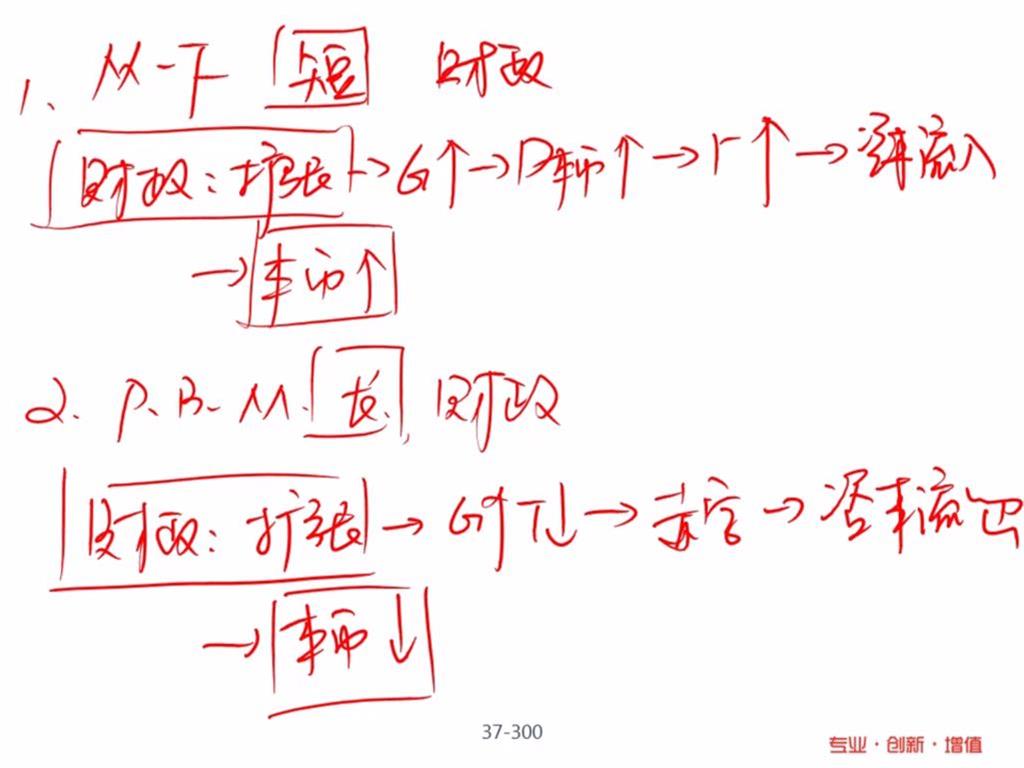 1、M-F 短 财政
财政：扩张 → G↑ → D本币↑ → r↑ → 资本流入
→ 本币↑
2. P.B.M. 长. 财政
财政：扩张 → G↑ T↓ → 赤字 → 资本流出
→ 本币↓
37-300
专业·创新·增值